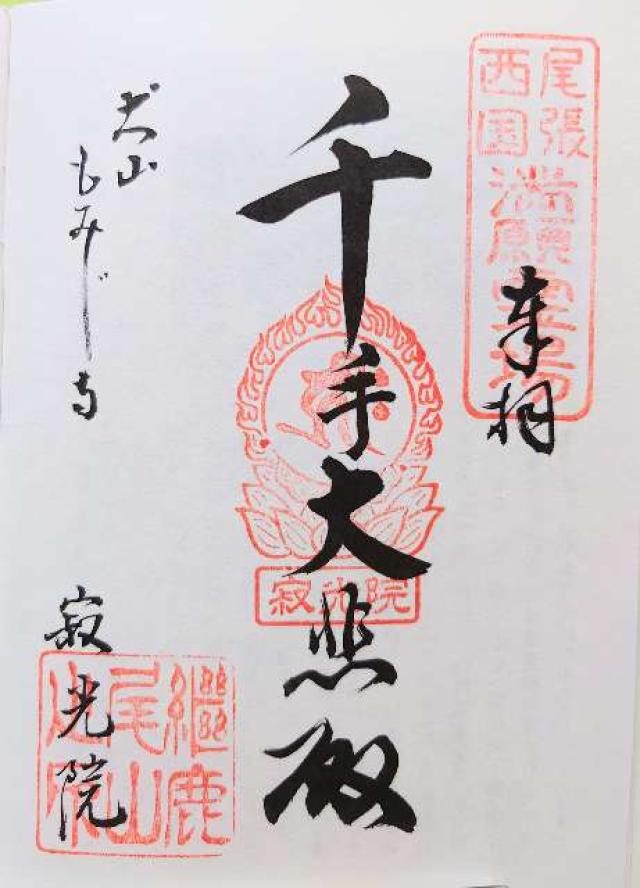 尾張
西国
満願霊場
奉拝
千手大悲殿
寂光院
犬山
もみじ寺
寂光院
継鹿尾山